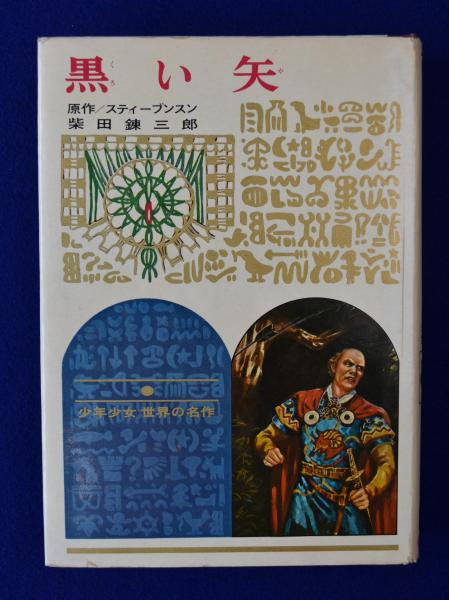 黒い矢
原作/スティーブンスン
柴田錬三郎
少年少女 世界の名作